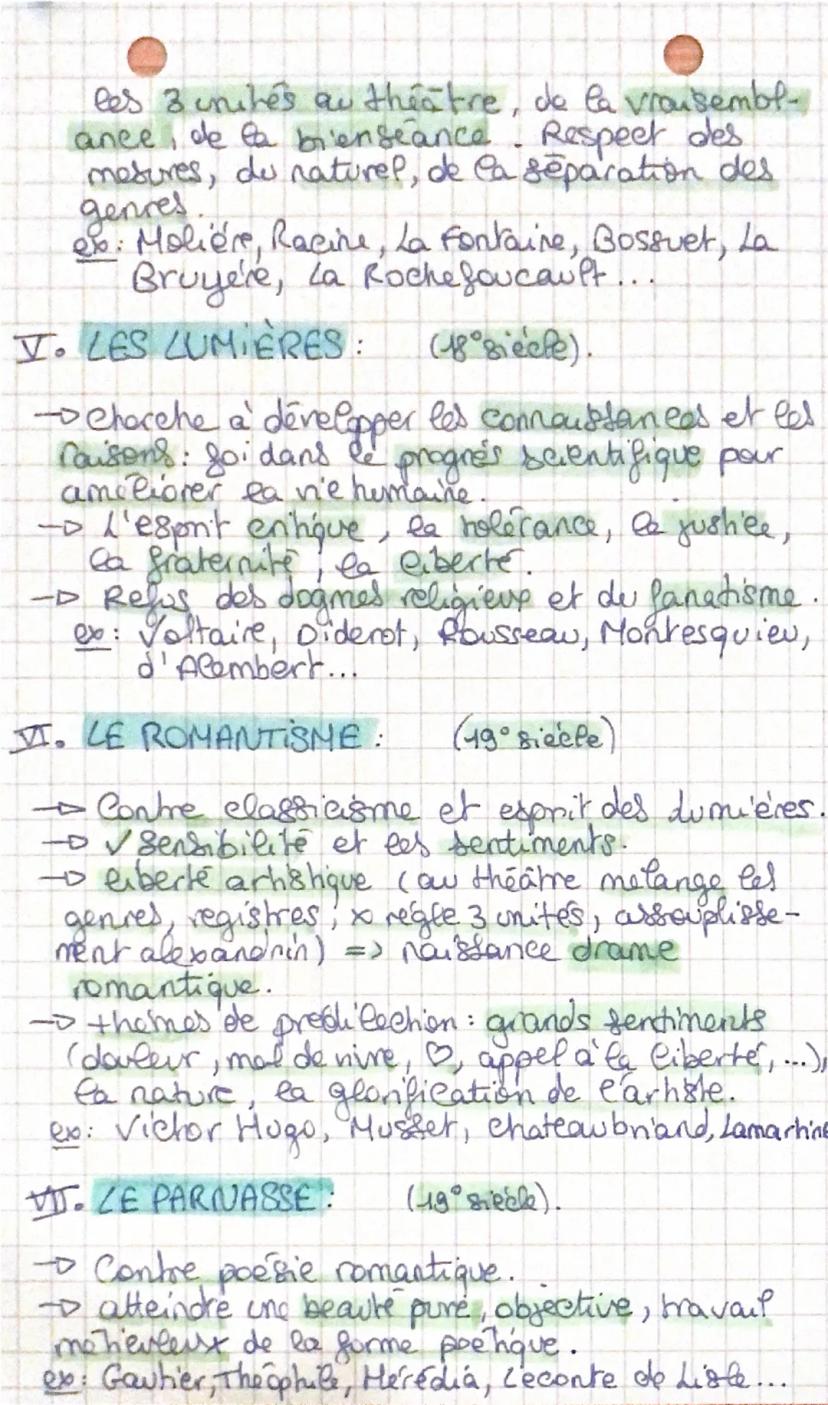 les 3 unités au théâtre, de la vraisembl-
ance, de la bienséance. Respect des
mesures, du naturel, de la séparation des
genres.
ex: Molière, Racine, La Fontaine, Bossuet, La
Bruyère, La Rochefoucault...
V. LES LUMIÈRES: (18° siècle).
→ cherche à développer les connaissances et les
raisons: foi dans le progrès scientifique pour
améliorer la vie humaine.
→ L'esprit critique, la tolérance, la justice,
la fraternité, la liberté.
→ Refus des dogmes religieux et du fanatisme.
ex: Voltaire, Diderot, Rousseau, Montesquieu,
d'Alembert...
VI. LE ROMANTISME: (19° siècle)
→ Contre classicisme et esprit des lumières.
→ ✓ sensibilité et les sentiments.
→ liberté artistique (au théâtre mélange les
genres, registres, x règle 3 unités, assouplisse-
ment alexandrin) => naissance drame
romantique.
→ thèmes de prédilection: grands sentiments
(douleur, mal de vivre, ♡, appel à la liberté, ...),
la nature, la glorification de l'artiste.
ex: Victor Hugo, Musset, Chateaubriand, Lamartine
VII. LE PARNASSE: (19° siècle).
→ Contre poésie romantique.
→ atteindre une beauté pure, objective, travail
métieuleux de la forme poétique.
ex: Gautier, Théophile, Hérédia, Leconte de Lisle...